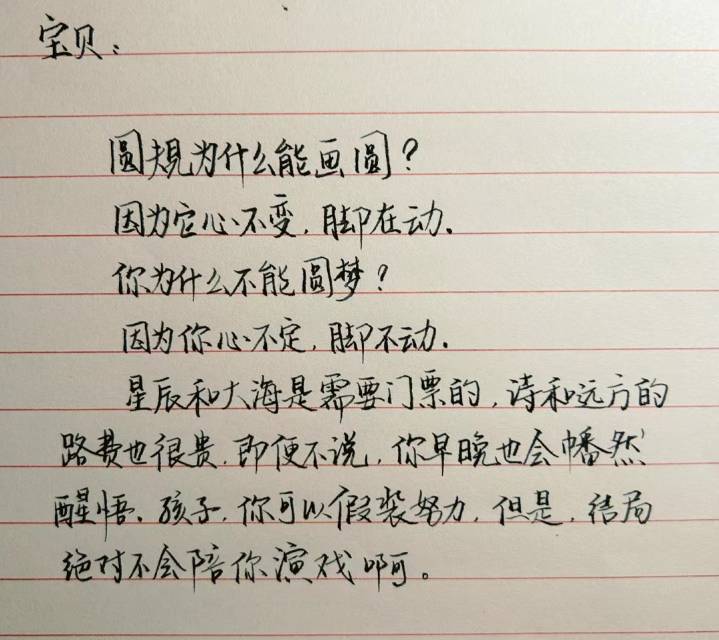 宝贝：
圆规为什么能画圆？
因为它心不变，脚在动。
你为什么不能圆梦？
因为你心不定，脚不动。
星辰和大海是需要门票的，诗和远方的
路费也很贵，即便不说，你早晚也会幡然
醒悟。孩子，你可以假装努力，但是，结局
绝对不会陪你演戏啊。